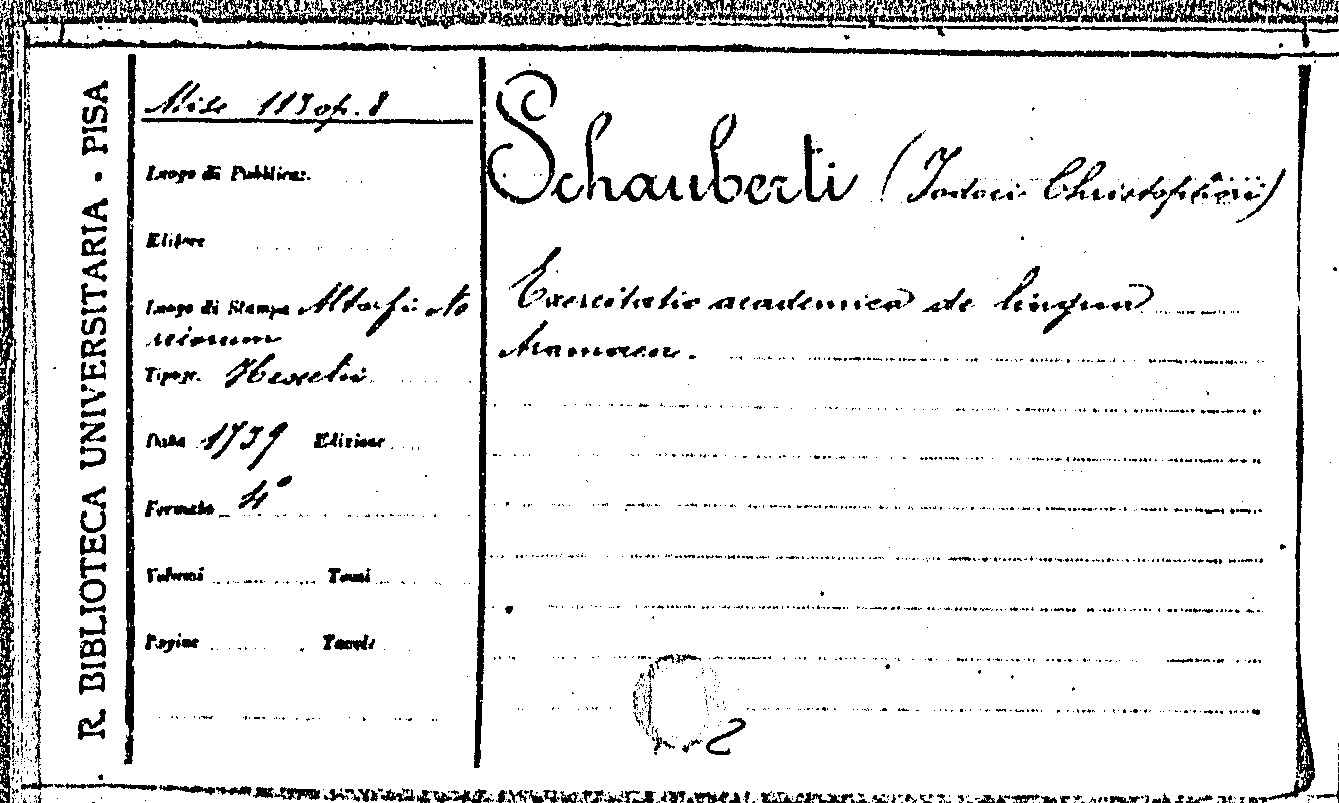 R. BIBLIOTECA UNIVERSITARIA - PISA
Misc 113 op. 8
Luogo di Pubblicaz.
Editore
Luogo di Stampa Altorfii No
ricorum
Tipogr. Hesselii
Data 1739 Edizione
Formato 4°
Volumi Tomi
Pagine Tavole
Schauberti (Jodoci Christophori)
Exercitatio academica de lingua
2